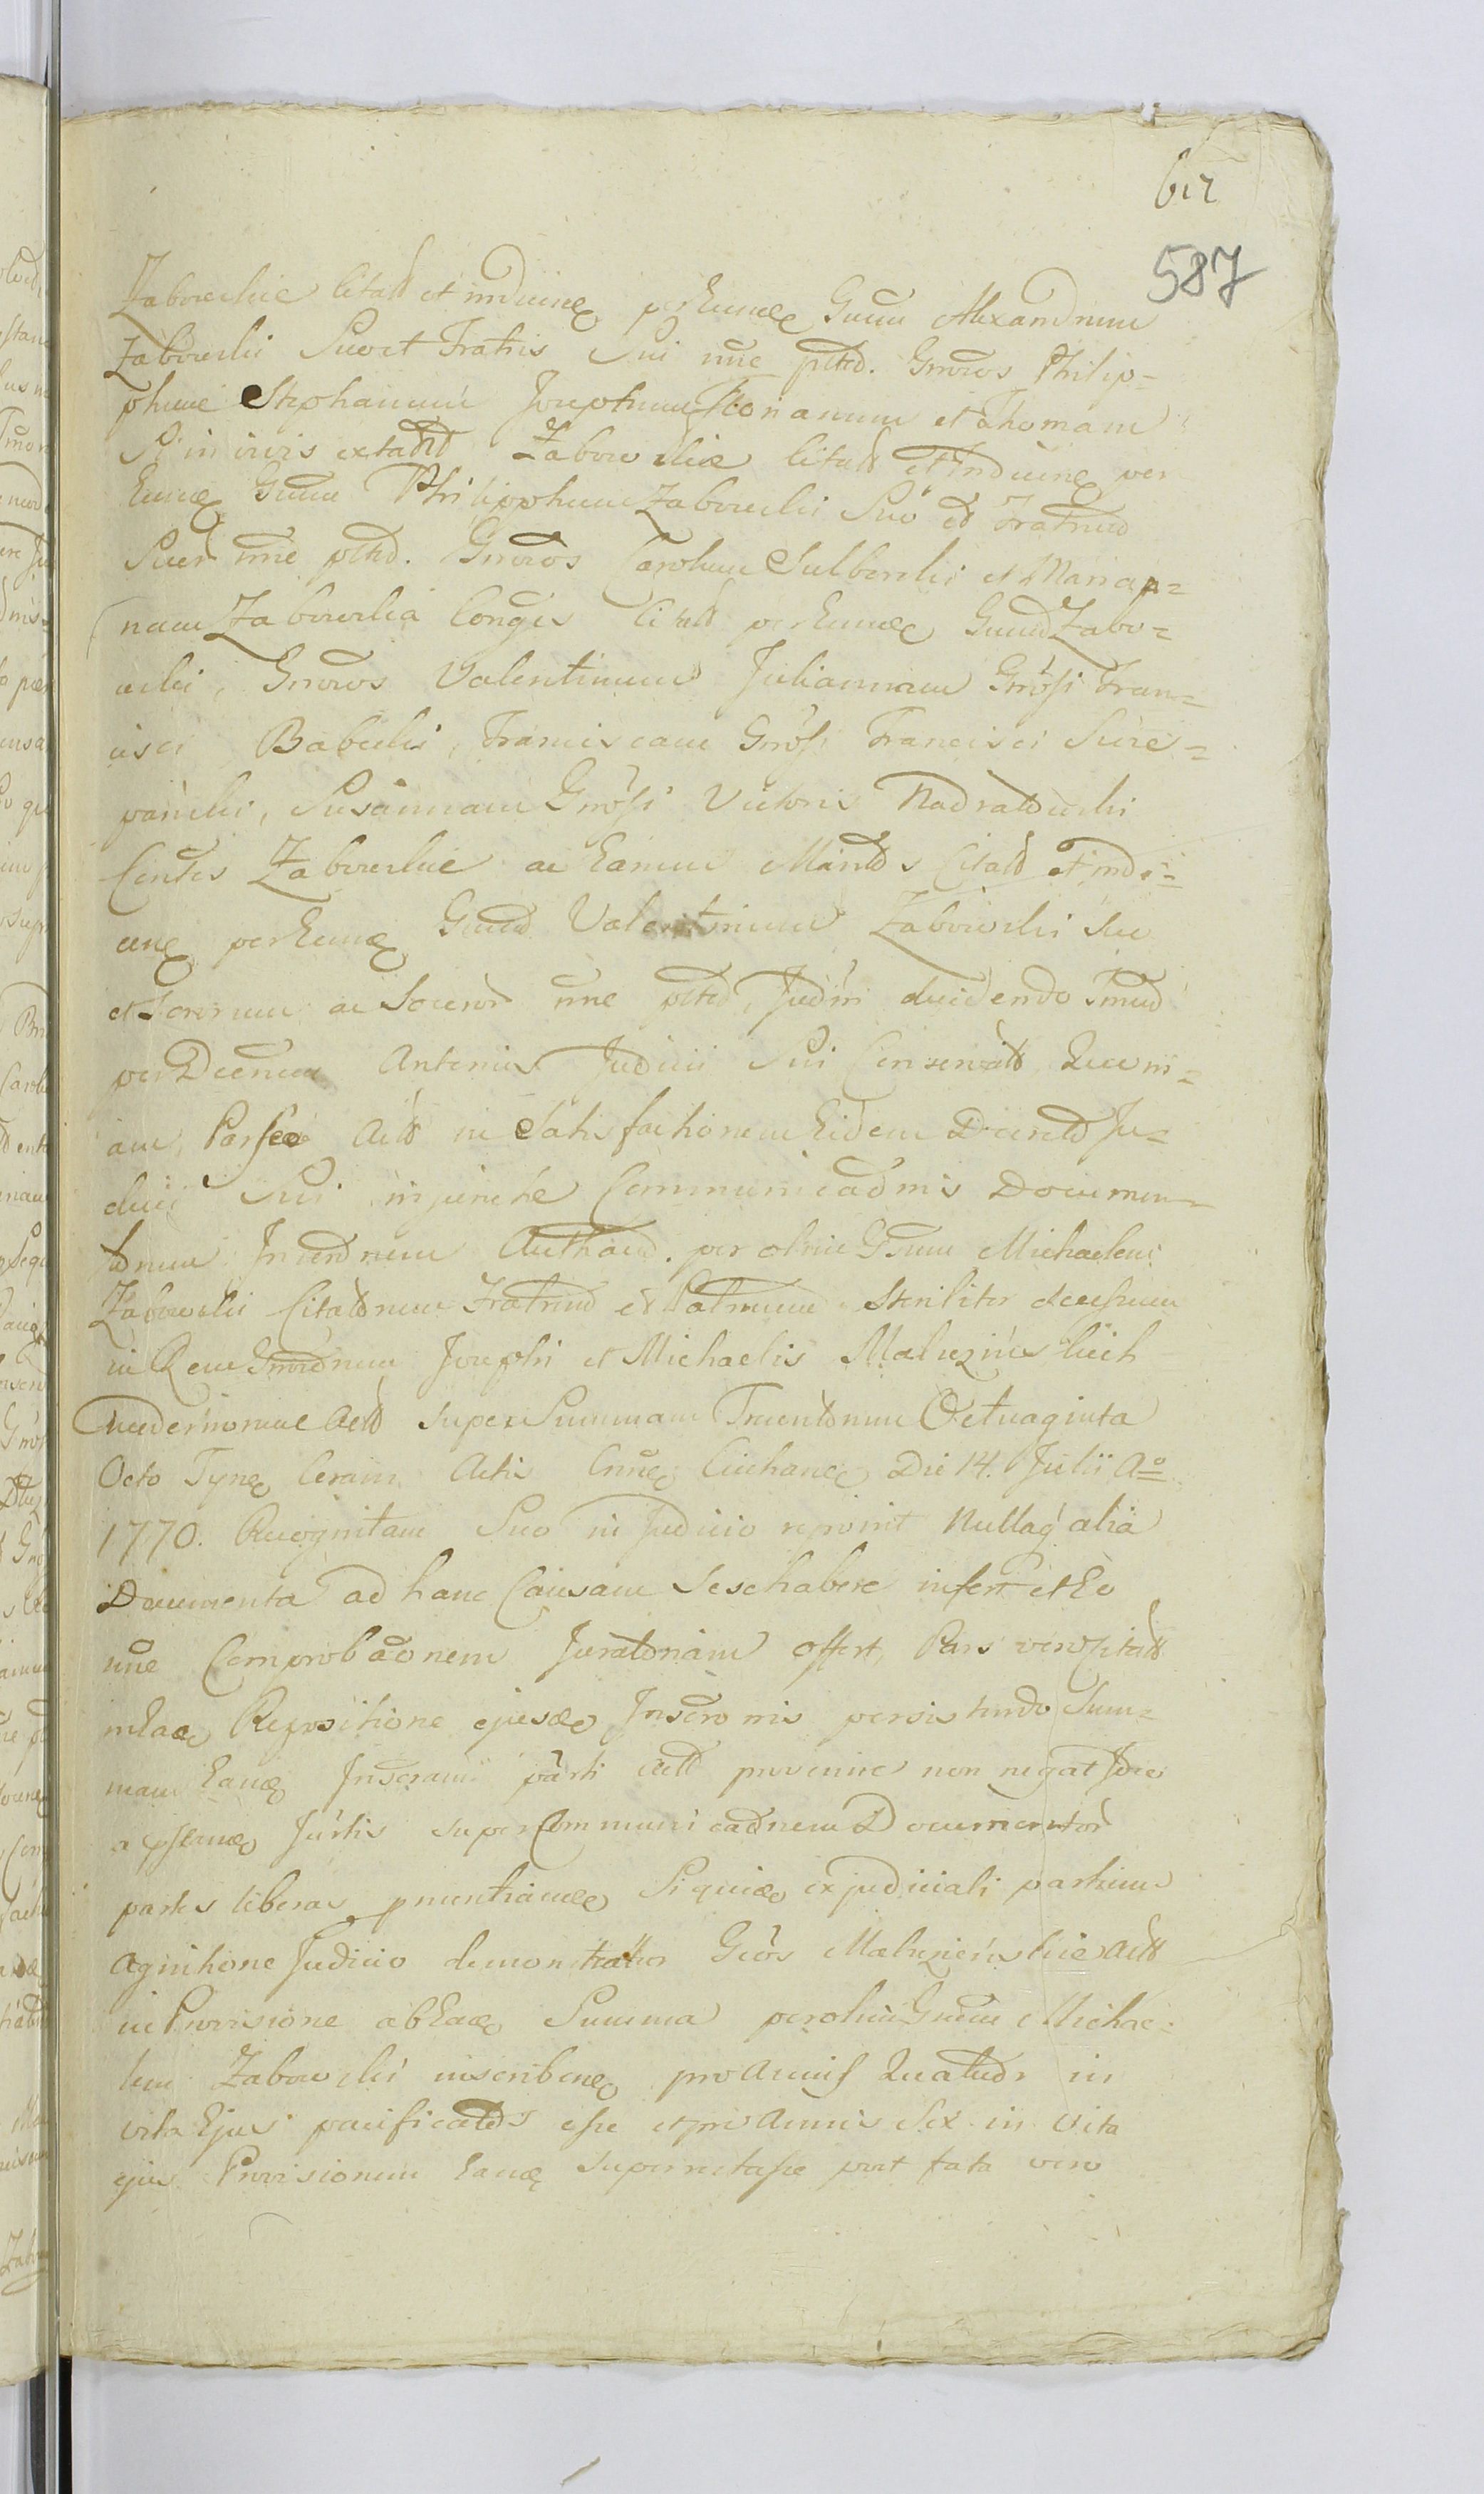 612
587
Zabowskie citatt et inducing per Eumq Gnum Alexandrum
Zabowski Suo et Fratris Sui nne pltd. Gnrows Philip=
phum Stephanum Josephum Florianum et Thomam
in vivis extantt Zabowskie citatt et Inducing per
Eumq Gnum Philipphum Zabowski Suo et Fratrud
Suor nne pltd. Gnrows Carolum Sulberski et Marian=
nam Zabowska Conges citatt per Eumq Gnum Zabo=
wski, Gnrows Valentinum Juliannam Grosi Fran=
cisci Babecki, Franciscam Grosi Francisci Szcze=
panski, Susannam Grosi Victoris Nadratowski
Contes Zabowskie ac Earum Maritts Citatt et Indu=
cing per Eumq Gnum Valentinum Zabowski Suo
et Sororum ac Soror nne pltd, Judin decidendo Imud
per Decrum Anterius Judicii Sui Conservatt Quoni=
am, Pars Actt in Satisfactionem Eidem Decretd Ju=
dicii Sui injuncte Communicaonis Documen=
torum Inscronem Authen. per olim Gnum Michaelem
Zabowski Citatorum Fratrum et Patruum Steriliter decessum
in Rem Gnrorum Josephi et Michaelis Maluzinskich
modernorum Actt super Summam Trecentorum Octuaginta
Octo Tynq Coram Actis Cnnq Ciechanq Die 14. Julii Ao
1770. Recognitam Suo in Judicio reponit Nullaq alia
Documenta ad hanc Causam Sese habere infert et Eo
nne Comprobaonem Juratoriam offert, Pars vero Citatt
in Eaq Repositione ejusq Inscronis persistendo Sum=
mam Eamq Inscram parti actt provenire non negat Ideo
a psenq Juris super Communicaonem Documentor
partes liberas pnuntiamq Si quiq ex judiciali partium
Agnitione Judicio demonstratur Gros Maluzienskie Actt
in Provisione ab Eaq Summa per olim Gnum Michae=
lem Zabowski inscribenq pro Annis Quatuor in
vita Ejus pacificatos esse et pro Annis Sex in vita
ejus Provisionem Eamq Superrestasse post fata vero